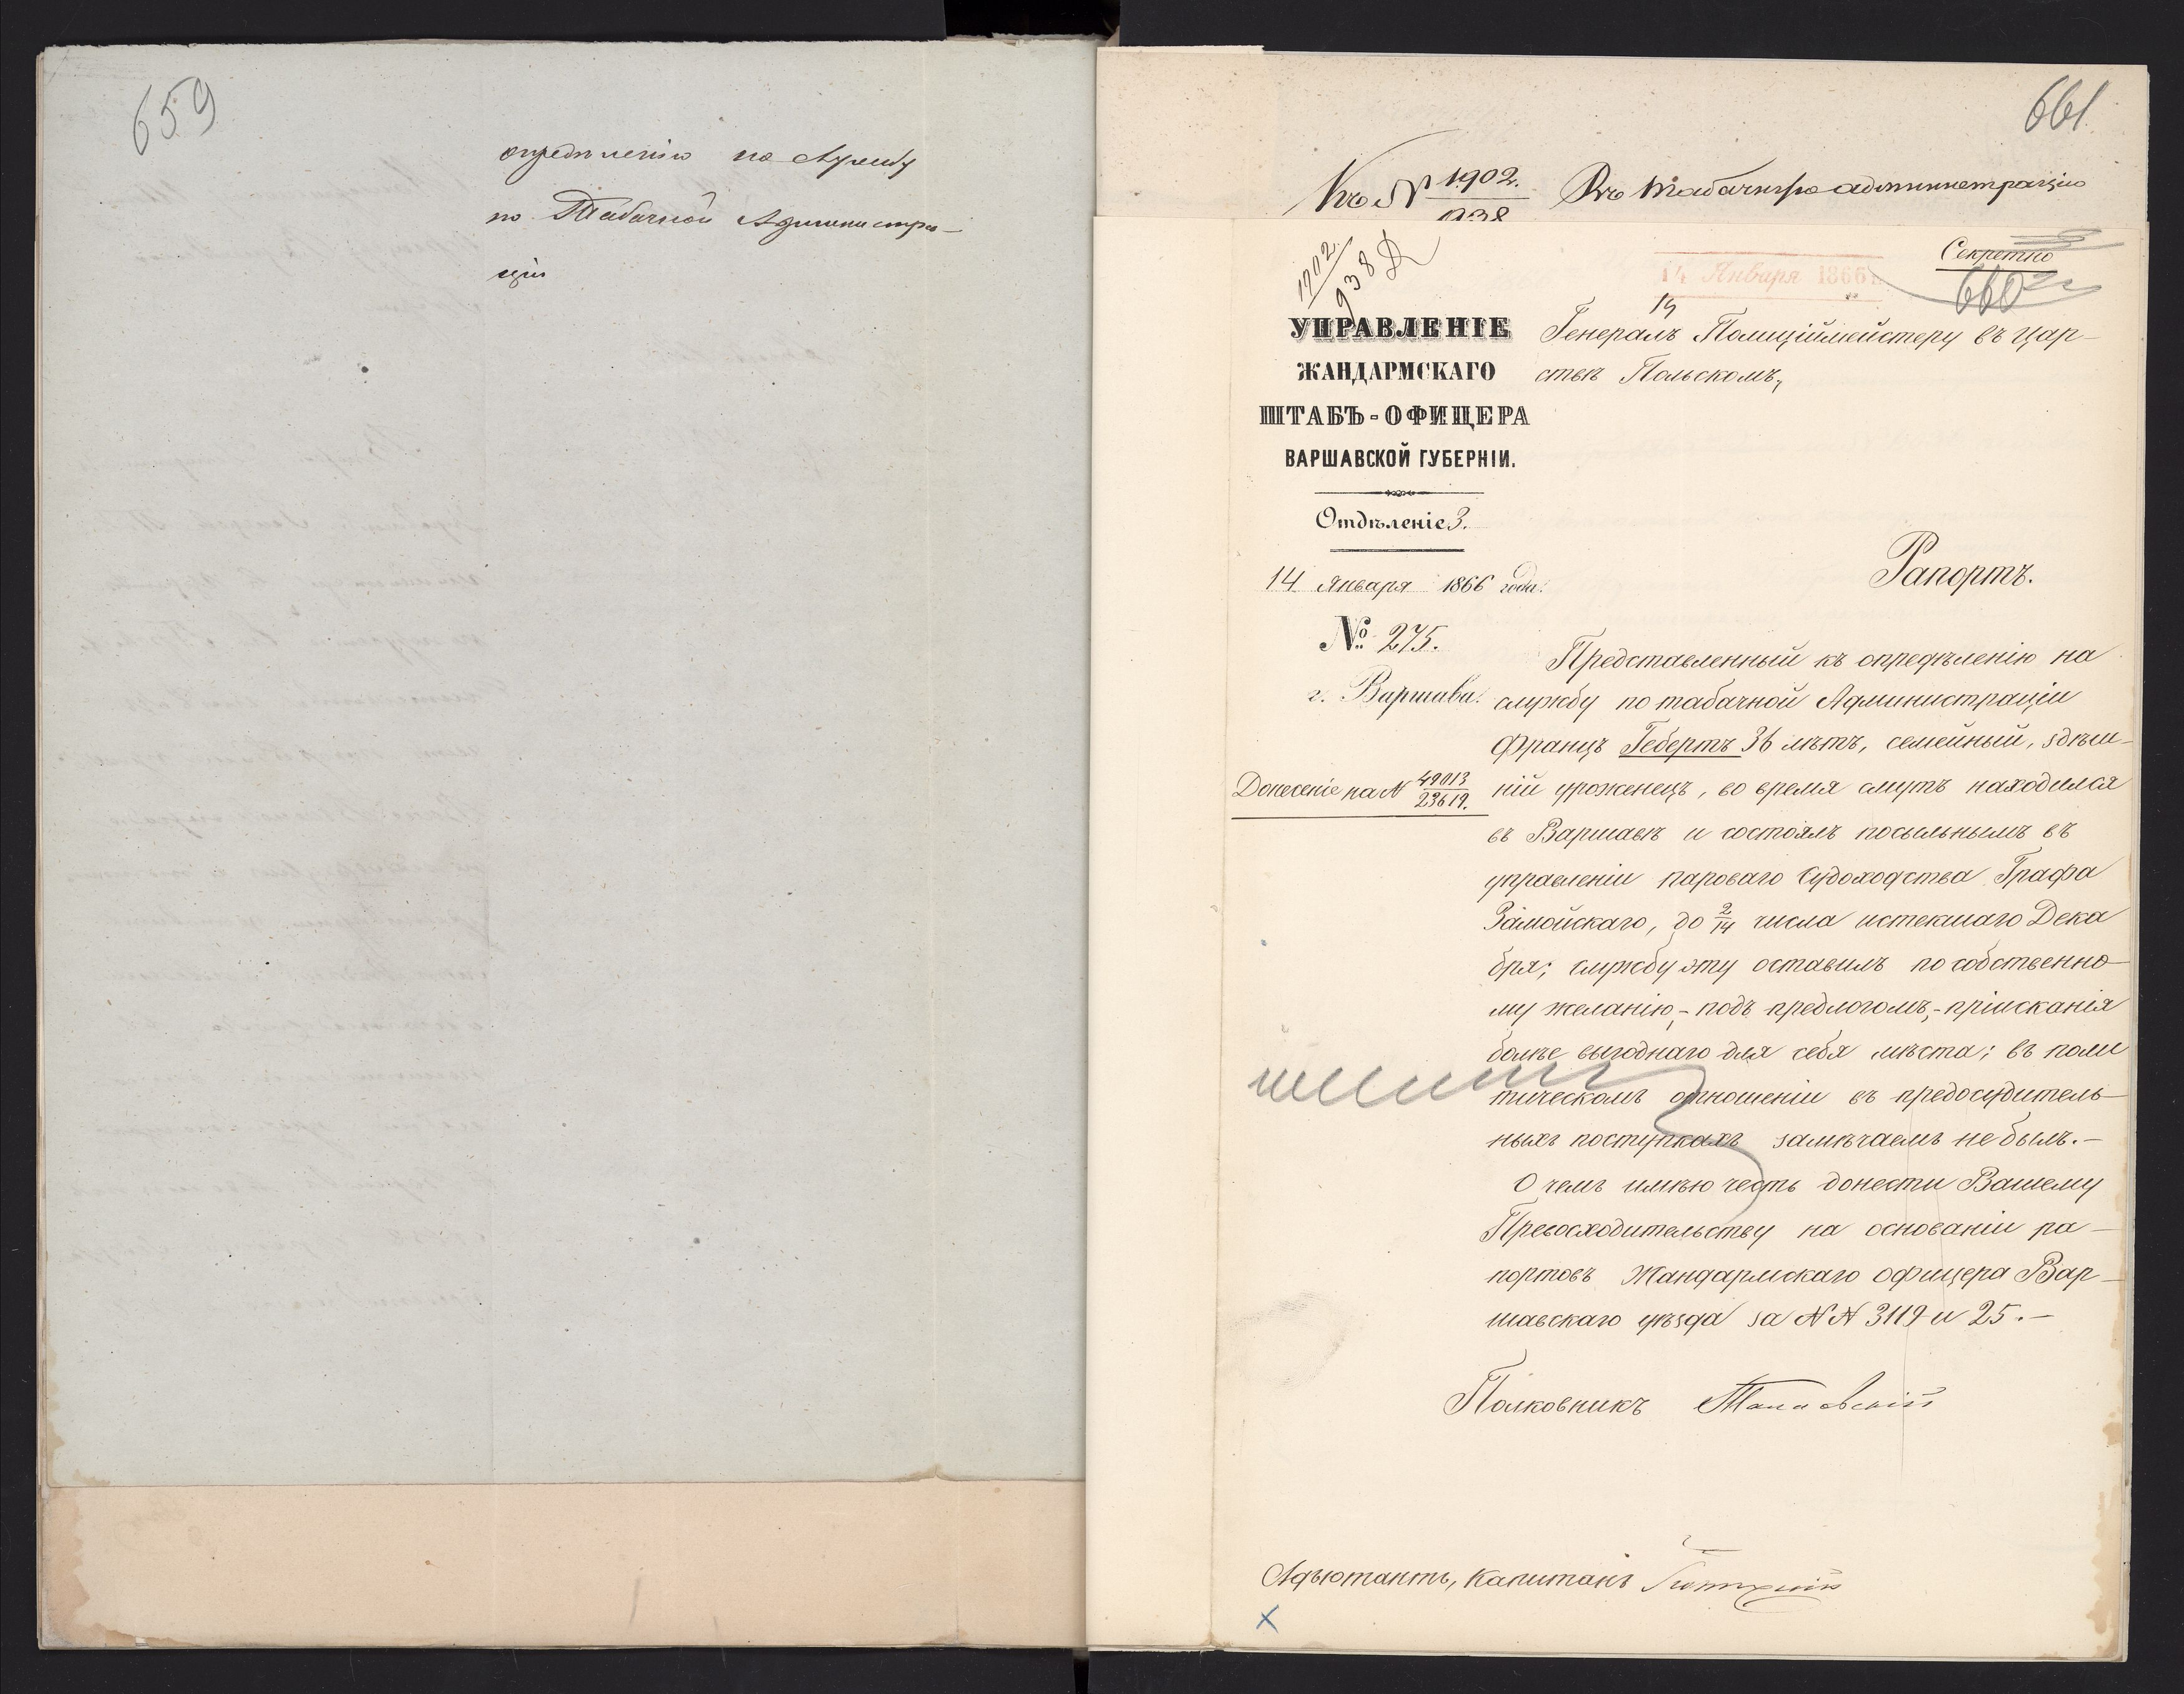 659
опредѣленію на службу
по Табачной Администра-
ціи
661.
Къ № 1902. Въ табачную администрацію
938
Секретно
1902
938 Д
14 Января 1866
660
14
УПРАВЛЕНІЕ
ЖАНДАРМСКАГО
ШТАБЪ-ОФИЦЕРА
ВАРШАВСКОЙ ГУБЕРНІИ.
Отдѣленіе 3.
14 Января 1866 года.
№ 275.
г. Варшава.
Донесеніе на № 49013
23619.
Генералъ Полиціймейстеру въ Цар-
ствѣ Польскомъ,
Рапортъ.
Представленный къ опредѣленію на
службу по табачной Администраціи
Францъ Гебертъ 36 лѣтъ, семейный, здѣш-
ній уроженецъ, во время смутъ находился
въ Варшавѣ и состоялъ посыльнымъ въ
управленіи пароваго судоходства Графа
Замойскаго, до 2/14 числа истекшаго Дека
бря; службу эту оставилъ по собственно-
му желанію,- подъ предлогомъ,- пріисканія
болѣе выгоднаго для себя мѣста; въ поли
тическомъ отношеніи въ предосудитель-
ныхъ поступкахъ замѣчаемъ не былъ.-
О чемъ имѣю честь донести Вашему
Превосходительству на основаніи ра-
портовъ Жандармскаго офицера Вар-
шавскаго уѣзда за №№ 3119 и 25.-
Полковникъ
Адъютантъ, Капитанъ